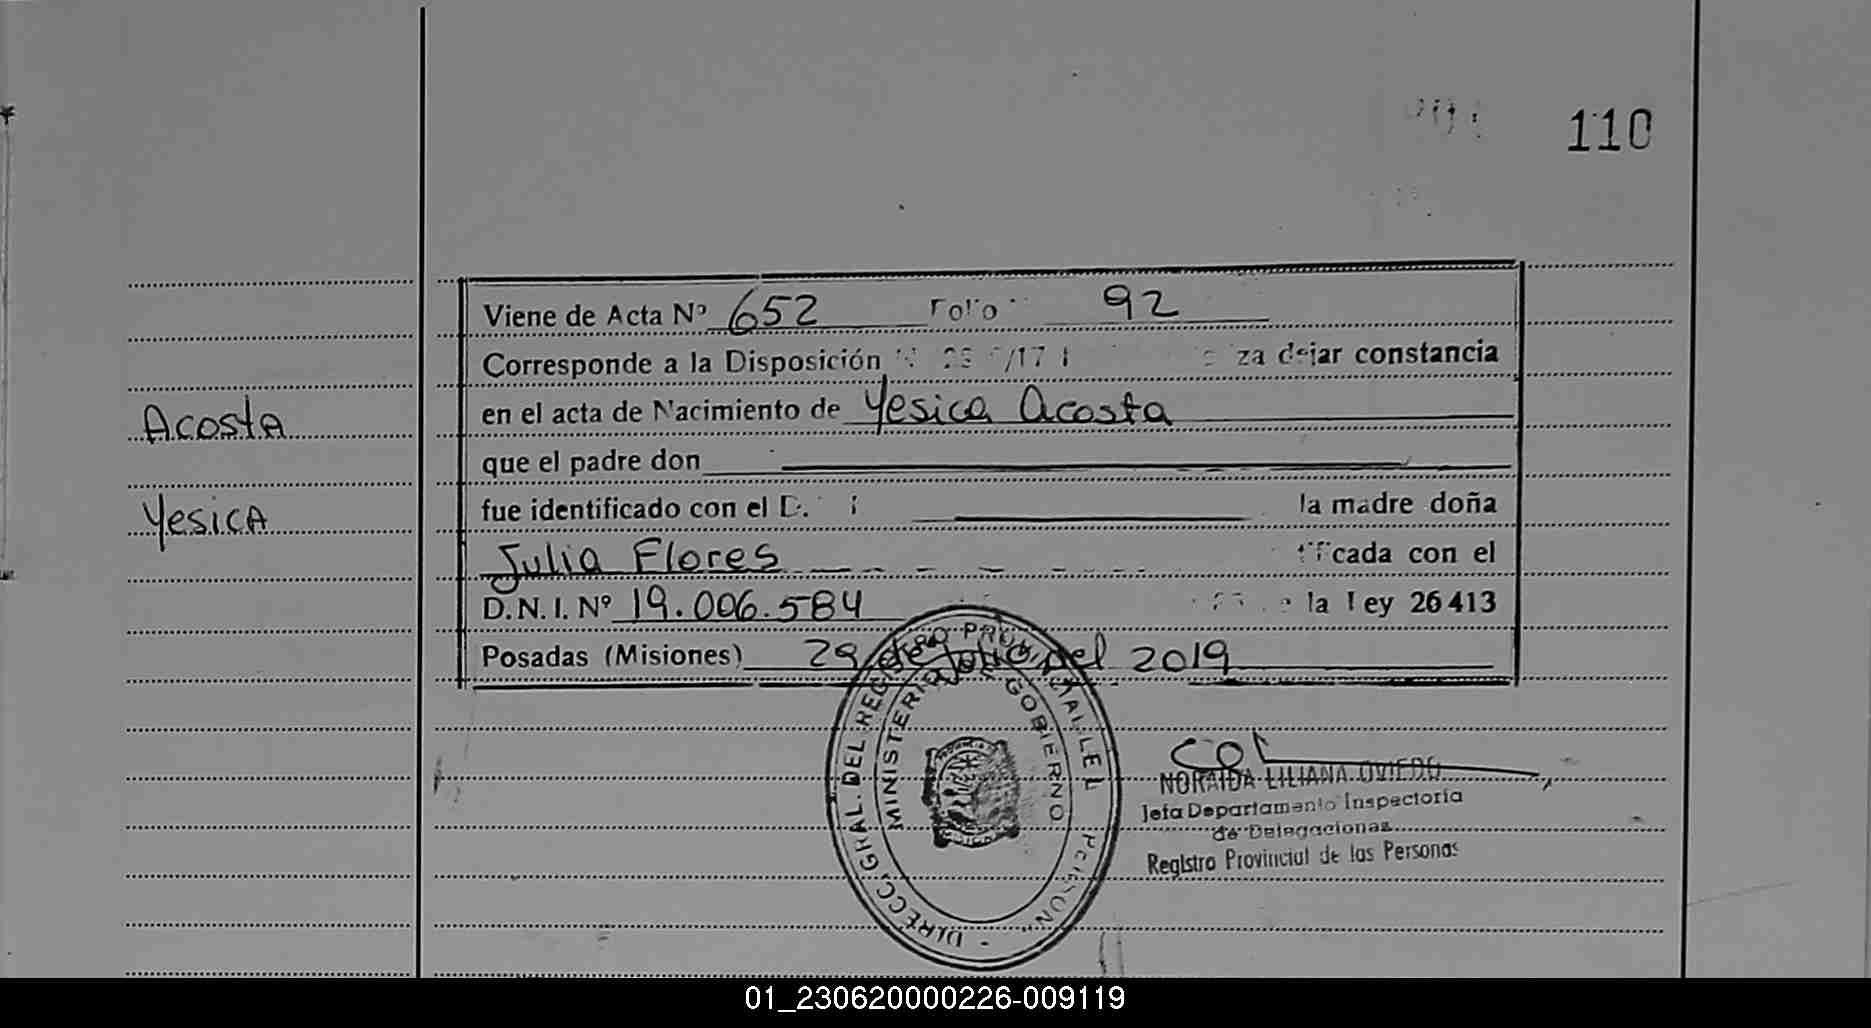 110
Viene de Acta Nº 652 Folio 92
Corresponde a la Disposición /17 dejar constancia
en el acta de Nacimiento de Yesica Acosta
Acosta
que el padre don
fue identificado con el D. la madre doña
Yesica
Julia Flores con el
D.N.I. Nº 19.006.584 la Ley 26413
Posadas (Misiones) 29 de Julio del 2019
DIRECC. GRAL. DEL REGISTRO PROVINCIAL DE
MINISTERIO DE GOBIERNO
NORAIDA LILIANA OVIEDO
Jefa Departamento Inspectoria
de Delegaciones
Registro Provincial de las Personas
01_230620000226-009119